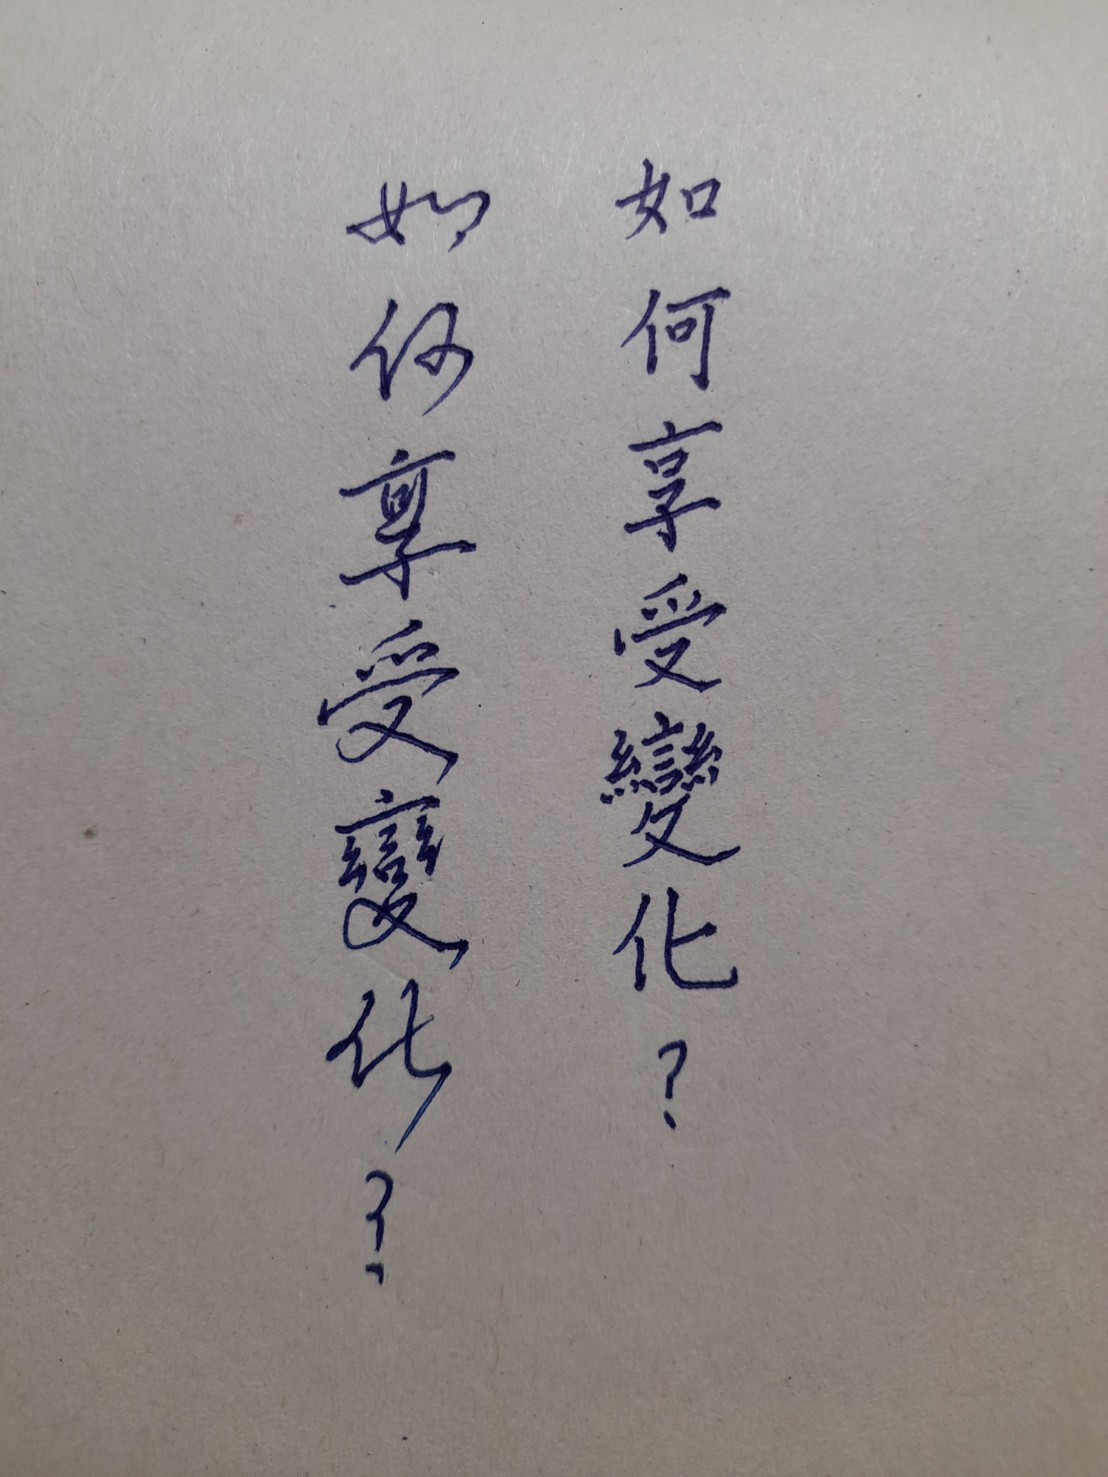 如何享受變化?
如何享受變化?